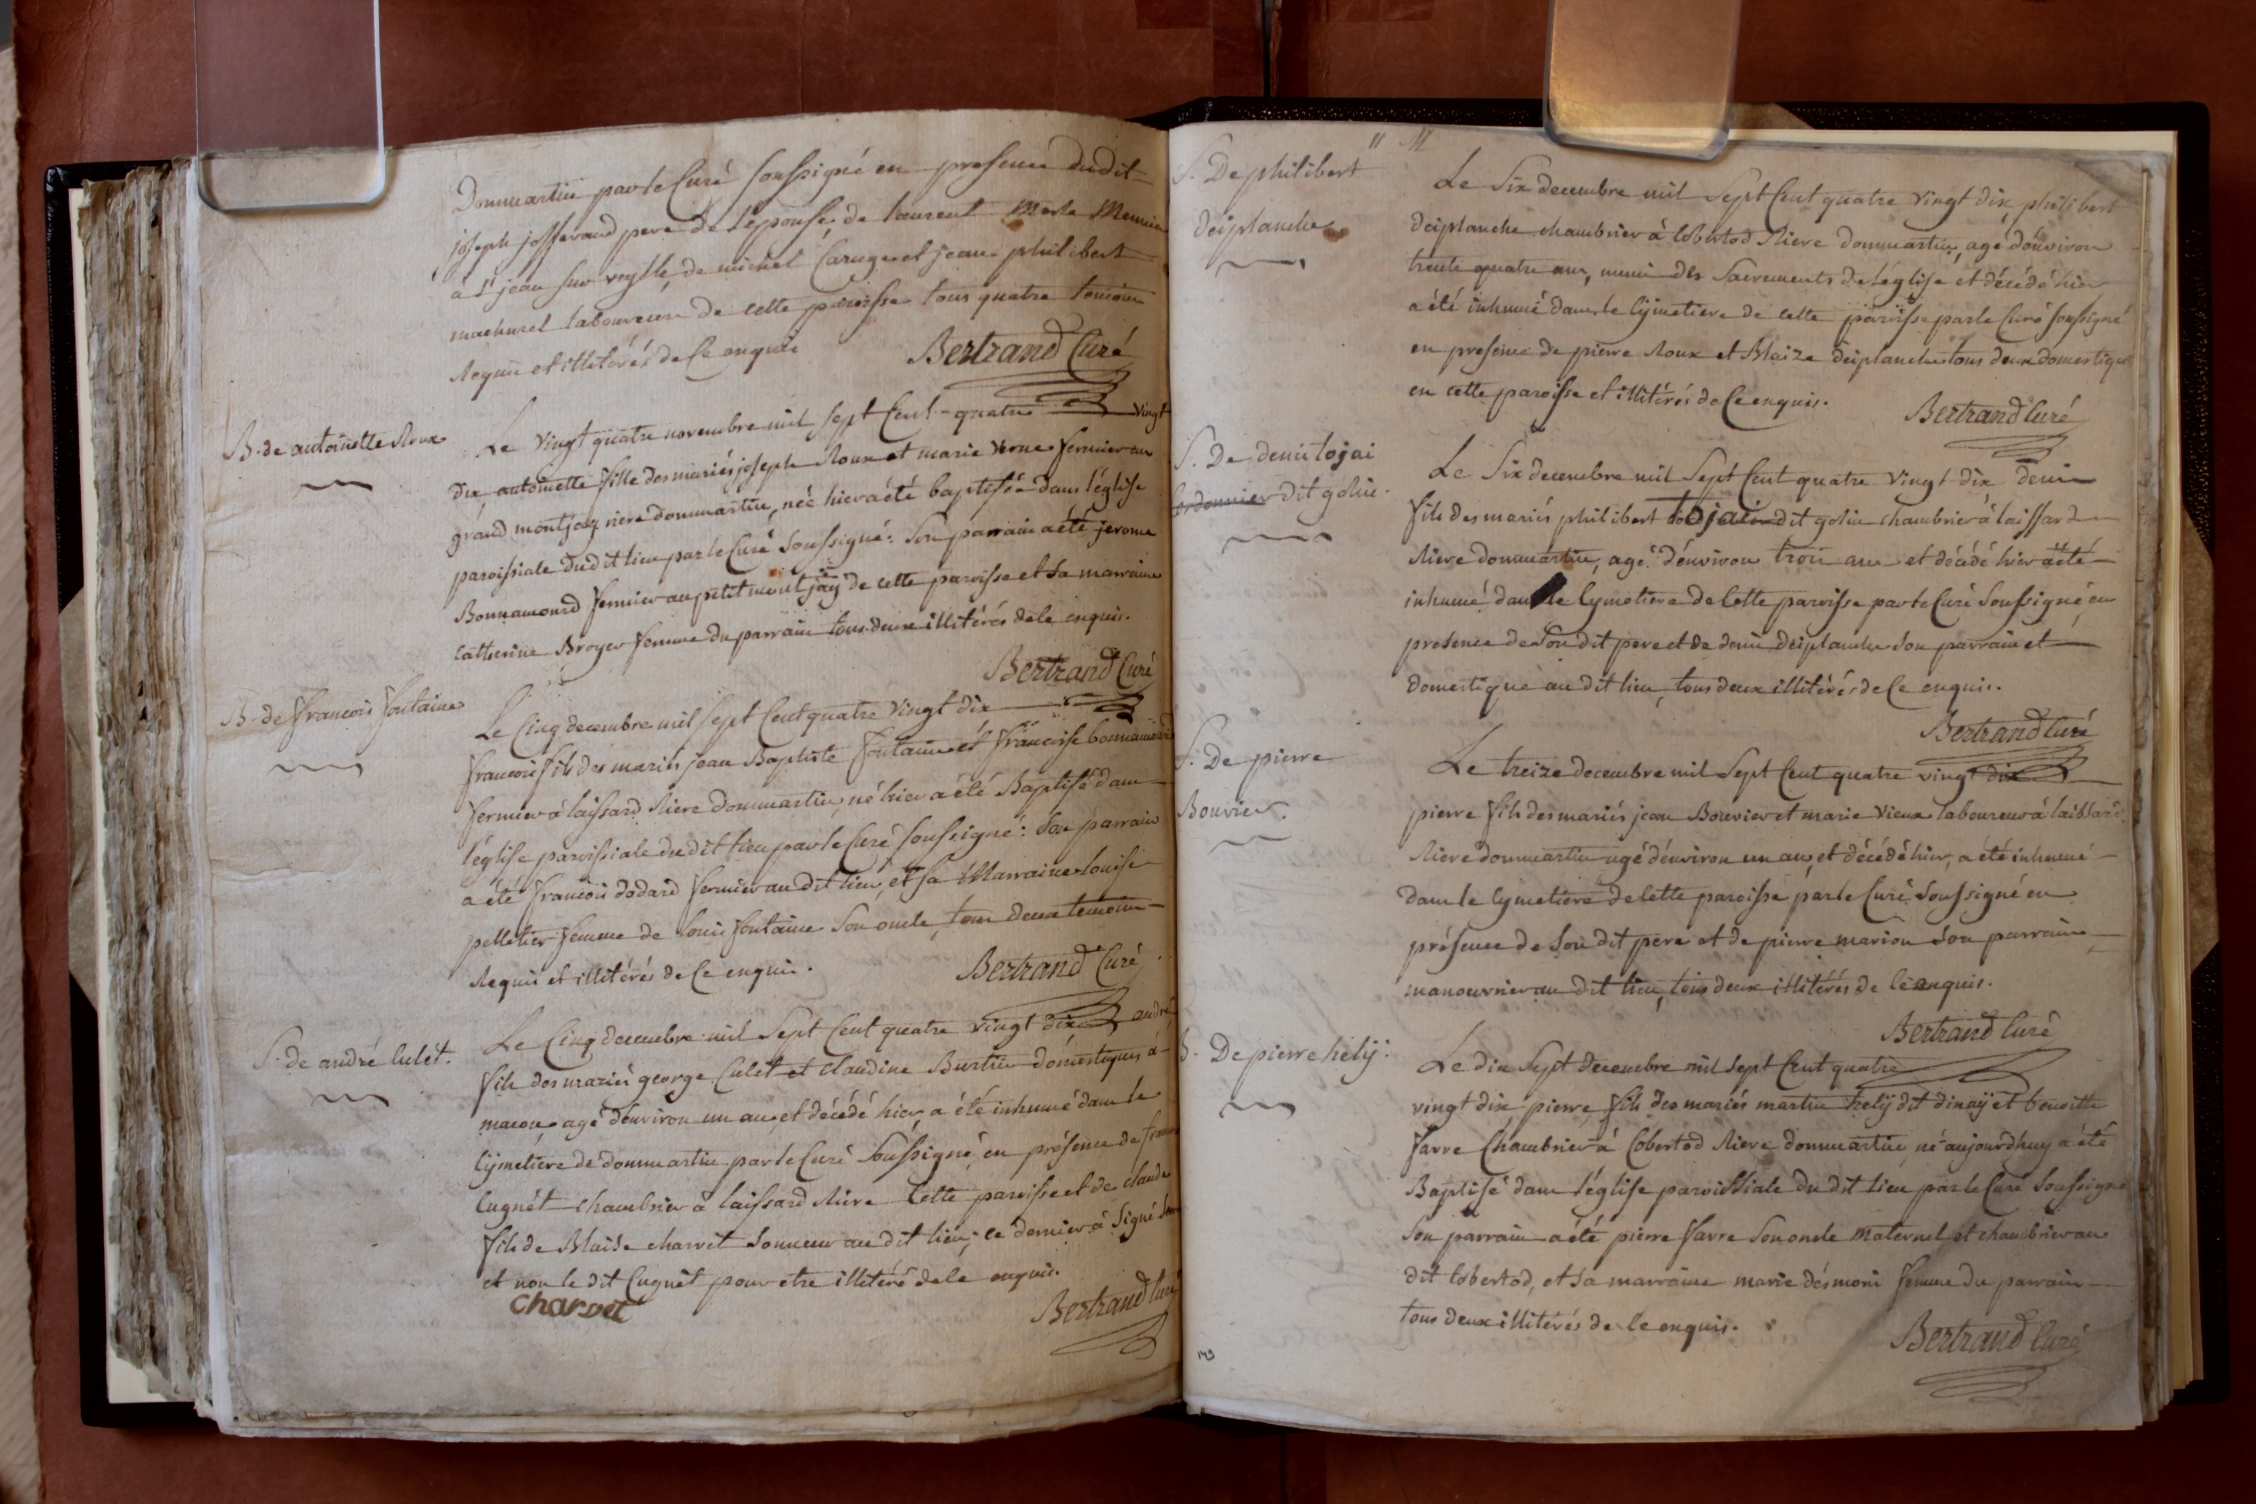 Dommartin par le Curé soussigné en presence dudit
joseph josserand pere de l'épouse, de laurent merle Meunier
à St jean sur veylle, de michel Caruge et jean philibert
machurel laboureurs de cette paroisse tous quatre temoins
Requis et illitérés de Ce enquis
Bertrand Curé
B. de antoinette Roux
Le vingt quatre novembre mil sept Cent quatre vingt
dix antoinette fille des mariés joseph Roux et marie verne fermier au
grand montjay riere dommartin, née hier a été baptisée dans l'église
paroissiale dudit lieu par le Curé soussigné: son parrain a été jerome
Bonnamourd fermier au petit montjay de cette paroisse et sa marraine
catherine Broyer femme du parrain tous deux illitérés de ce enquis.
Bertrand Curé
B. de francois fontaine
Le Cinq decembre mil sept Cent quatre vingt dix
francois fils des mariés jean Baptiste fontaine et francoise bonnamourd
fermier à laissard Riere dommartin, né hier a été Baptisé dans
l'église paroissiale du dit lieu par le Curé soussigné: son parrain
a été francois dodard fermier au dit lieu, et sa Marraine louise
pelletier femme de louis fontaine son oncle, tous deux temoins
Requis et illitérés de Ce enquis.
Bertrand Curé
S. de andré Culet.
Le Cinq decembre mil sept Cent quatre vingt dix andré
fils des mariés george Culet et claudine Burtin domestiques à
macon, agé d'environ un an, et décédé hier, a été inhumé dans le
Cymetiere de dommartin par le Curé soussigné, en présence de
Cugnet chambrier à laissard Riere Cette paroisse et de claude
fils de Blaise charvet sonneur au dit lieu, ce dernier a signé
et non le dit Cugnet pour etre illitéré de ce enquis.
charvet
Bertrand Curé
S. De philibert
deiplanche
Le six decembre mil sept Cent quatre vingt dix, philibert
deiplanche chambrier à Cobertod Riere dommartin, agé d'environ
trente quatre ans, muni des sacrements de l'église et décédé hier
a été inhumé dans le Cymetiere de cette paroisse par le Curé soussigné
en presence de pierre Roux et Blaize deiplanche tous deux domestiques
en cette paroisse et illitérés de Ce enquis.
Bertrand Curé
S. De denis lojai
cordonnier dit golin.
Le six decembre mil sept Cent quatre vingt dix denis
fils des mariés philibert lojai dit golin chambrier à laissard
Riere dommartin, agé d'environ trois ans et décédé hier a été
inhumé dans le Cymetiere de Cette paroisse par le Curé soussigné, en
presence de son dit pere et de denis deiplanche son parrain et
domestique au dit lieu, tous deux illitérés de Ce enquis.
Bertrand Curé
S. De pierre
Bouvier.
Le treize decembre mil sept Cent quatre vingt dix
pierre fils des mariés jean Bouvier et marie vieux laboureur à laissard
Riere dommartin agé d'environ un an, et décédé hier, a été inhumé
dans le Cymetiere de Cette paroisse, par le Curé soussigné en
présence de son dit pere et de pierre marion son parrain
manouvrier au dit lieu, tous deux illitérés de Ce enquis.
Bertrand Curé
B. De pierre hely.
Le dix sept decembre mil sept Cent quatre
vingt dix pierre, fils des mariés martin hely dit dinay et benoitte
favre Chambrier à Cobertod Riere dommartin, né aujourd'huy a été
Baptisé dans l'église paroissiale du dit lieu par le Curé soussigné
son parrain a été pierre favre son oncle maternel et chambrier au
dit Cobertod, et sa marraine marie desmoris femme du parrain
tous deux illitérés de Ce enquis.
Bertrand Curé